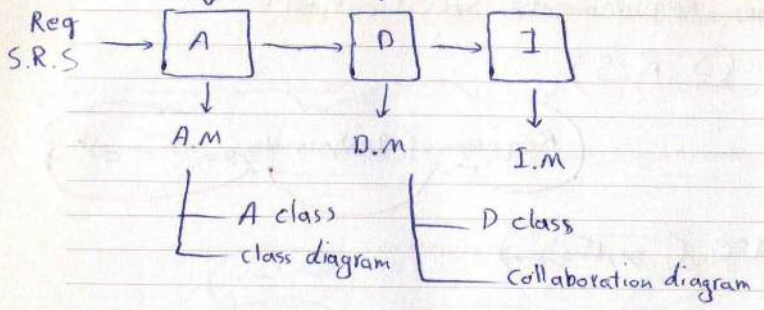 Req
S.R.S
A
D
I
A.M
D.M
I.M
A class
class diagram
D class
Collaboration diagram